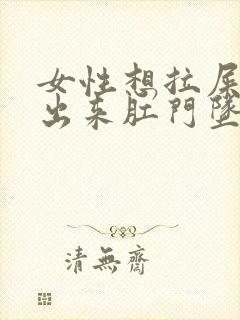 女性想拉屎
出来肛門墜
清無齋